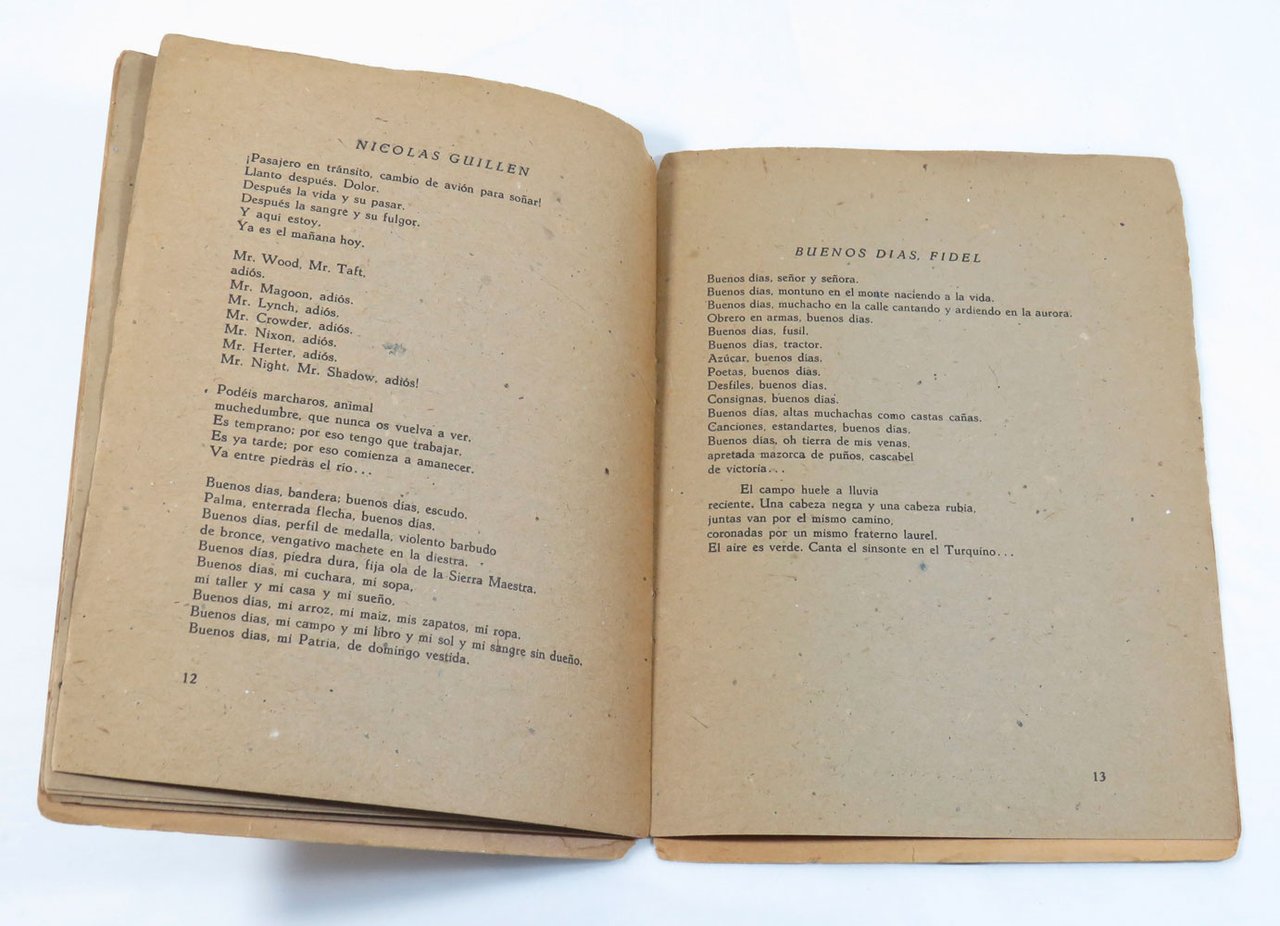 NICOLAS GUILLEN
¡Pasajero en tránsito, cambio de avión para soñar!
Llanto después. Dolor.
Después la vida y su pasar.
Después la sangre y su fulgor.
Y aquí estoy.
Ya es el mañana hoy.
Mr. Wood, Mr. Taft,
adiós.
Mr. Magoon, adiós.
Mr. Lynch, adiós.
Mr. Crowder, adiós.
Mr. Nixon, adiós.
Mr. Herter, adiós.
Mr. Night, Mr. Shadow, adiós!
Podéis marcharos, animal
muchedumbre, que nunca os vuelva a ver.
Es temprano; por eso tengo que trabajar.
Es ya tarde; por eso comienza a amanecer.
Va entre piedras el río...
Buenos días, bandera; buenos días, escudo.
Palma, enterrada flecha, buenos días.
Buenos días, perfil de medalla, violento barbudo
de bronce, vengativo machete en la diestra.
Buenos días, piedra dura, fija ola de la Sierra Maestra.
Buenos días, mi cuchara, mi sopa,
mi taller y mi casa y mi sueño.
Buenos días, mi arroz, mi maíz, mis zapatos, mi ropa.
Buenos días, mi campo y mi libro y mi sol y mi sangre sin dueño.
Buenos días, mi Patria, de domingo vestida.
12
BUENOS DIAS, FIDEL
Buenos días, señor y señora.
Buenos días, montuno en el monte naciendo a la vida.
Buenos días, muchacho en la calle cantando y ardiendo en la aurora.
Obrero en armas, buenos días.
Buenos días, fusil.
Buenos días, tractor.
Azúcar, buenos días.
Poetas, buenos días.
Desfiles, buenos días.
Consignas, buenos días.
Buenos días, altas muchachas como castas cañas.
Canciones, estandartes, buenos días.
Buenos días, oh tierra de mis venas,
apretada mazorca de puños, cascabel
de victoria...
El campo huele a lluvia
reciente. Una cabeza negra y una cabeza rubia,
juntas van por el mismo camino,
coronadas por un mismo fraterno laurel.
El aire es verde. Canta el sinsonte en el Turquino...
13